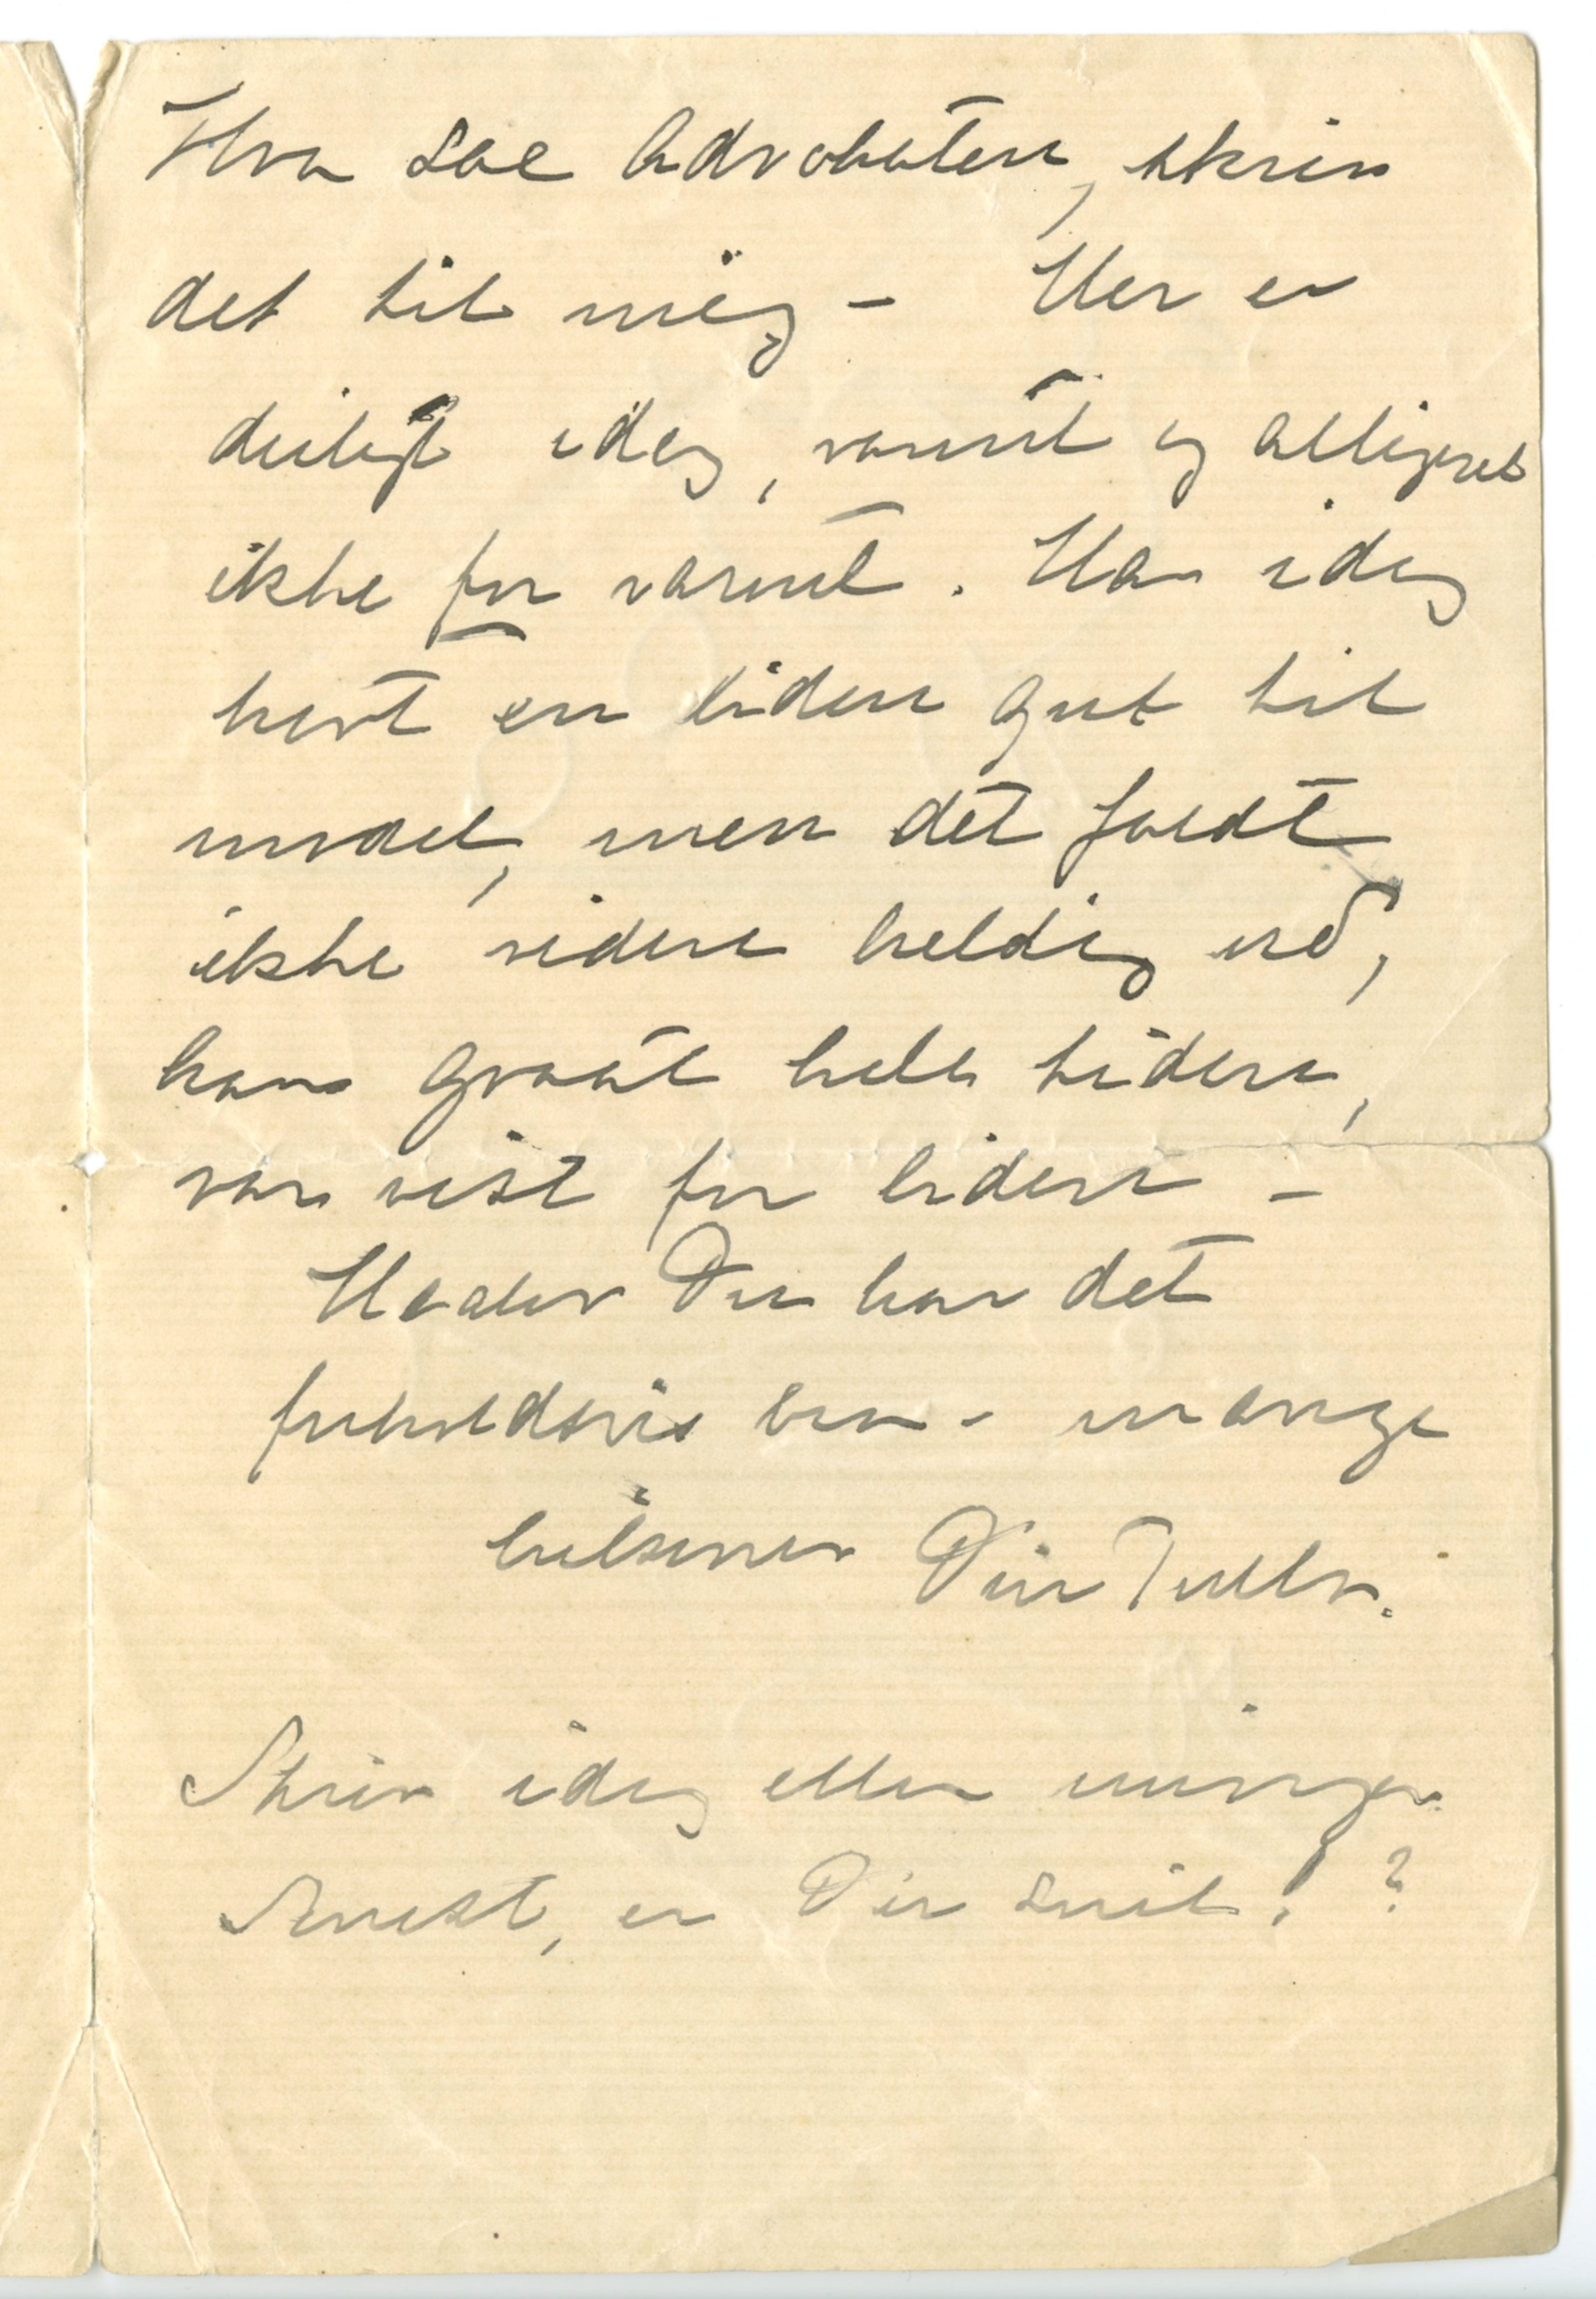 Hva sae Advokaten, skriv
det til mig – Her er
deiligt idag, varmt og alligevel
ikke for varmt. Har idag
havt en liden gut til
model, men det faldt
ikke videre heldig ud,
han graat hele tiden,
var vist for liden –
Haaber Du har det
forholdsvis bra – mange
hilsener Din Tulla.
Skriv idag eller imorgen.
Snust, er Du snil! ?